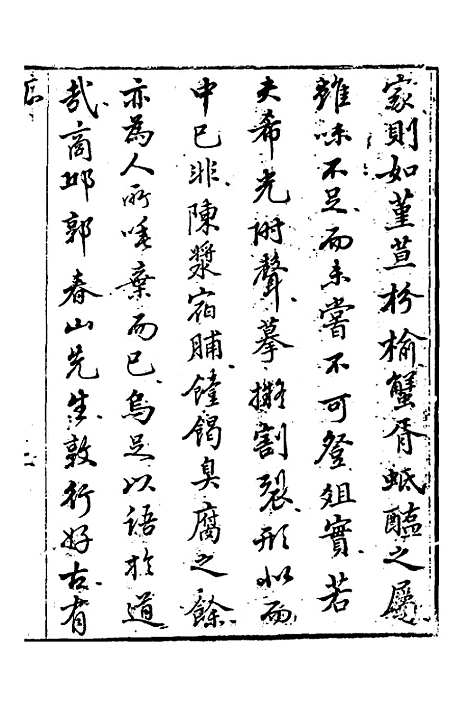 家則如菫荁枌榆蟹胥蚳醢之屬
雖味不足而未嘗不可登俎實若
夫希光附聲摹擬割裂形似而
中已非陳漿宿脯饐餲臭腐之餘
亦為人所唾棄而已烏足以語於道
哉商邱郭春山先生敦行好古有